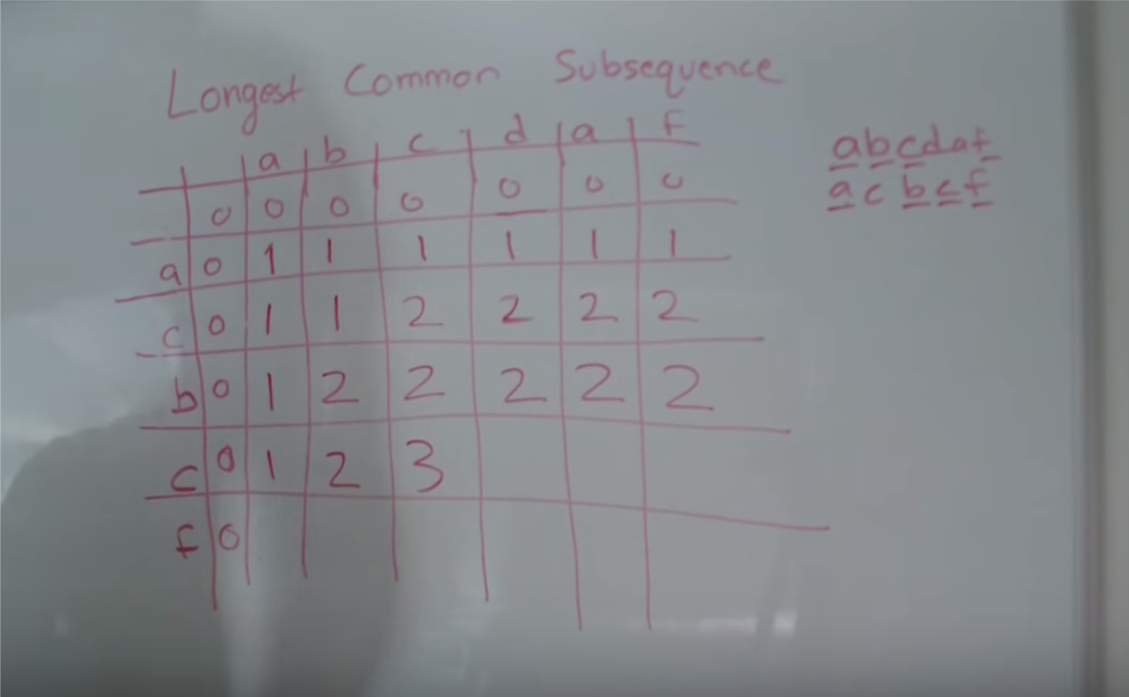 Longest Common Subsequence
a b c d a f
0 0 0 0 0 0 0
a 0 1 1 1 1 1 1
c 0 1 1 2 2 2 2
b 0 1 2 2 2 2 2
c 0 1 2 3
f 0
abcdaf
acbcf